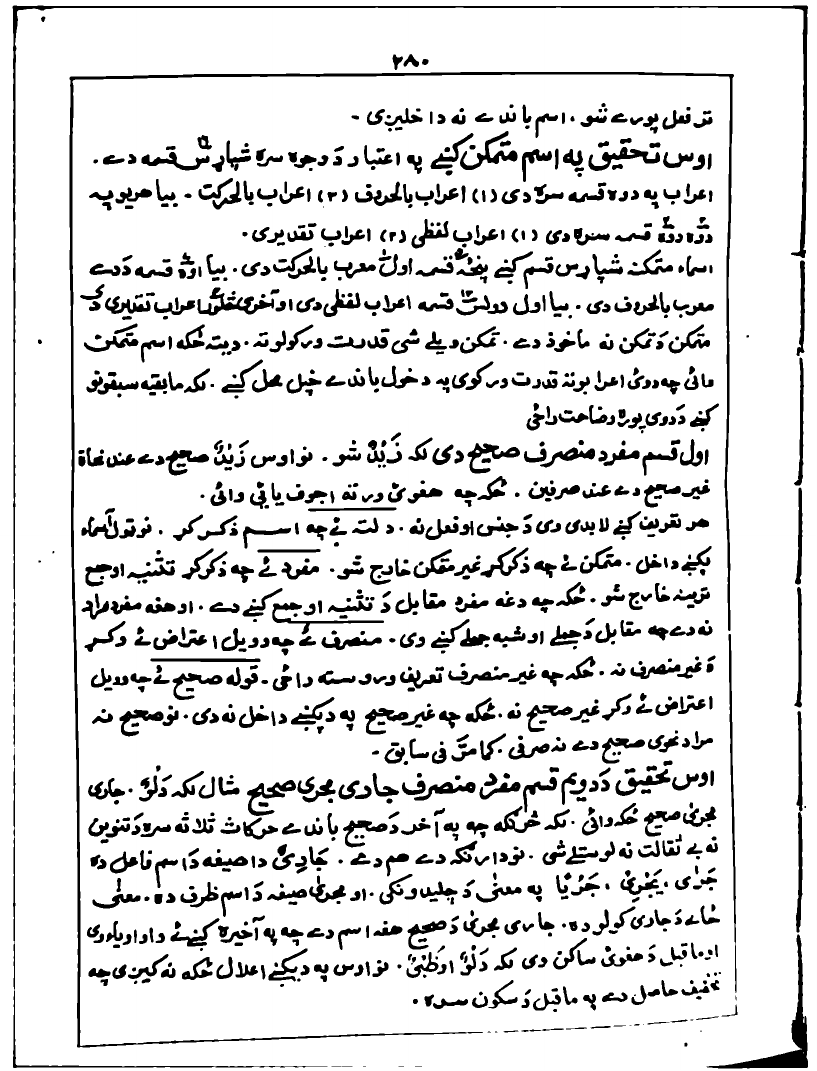 ۲۸۰
تر فعل پورے شو ، اسم باندے نہ داخلیږی -
اوس تحقیق پہ اسم متمکن کښے پہ اعتبار دَ وجوہ سرہ شپاړس قسمہ دے .
اعراب پہ دوہ قسمہ سرہ دی (۱) اعراب بالحروف (۲) اعراب بالحرکت - بیا هر یو پہ
دوہ دوہ قسمہ سرہ دی (۱) اعراب لفظی (۲) اعراب تقدیری .
اسماء متمکنہ شپاړس قسم کښے پنځہ قسمہ اول معرب بالحرکت دی . بیا اوہ قسمہ دَدے
معرب بالحروف دی . بیا اول دولس قسمہ اعراب لفظی دی او آخری څلور اعراب تقدیری دی
متمکن دَ تمکن نہ ماخوذ دے . تمکن ویلے شی قدرت ورکولو تہ . دیتہ ځکہ اسم متمکن
وائی چہ دوی اعرابونہ قدرت ورکوی پہ دخول باندے خپل محل کښے . لکہ مابقیہ سبقونو
کښے دَ دوی پورہ وضاحت راځی
اول قسم مفرد منصرف صحیح دی لکہ زَیْدٌ شو . نو اوس زَیْدٌ صحیح دے عند نحاة
غیر صحیح دے عند صرفین . ځکہ چہ هغوئ ورتہ اجوف یائی وائی .
هر تعریف کښے لابدی وی دَ جنس او فعل نہ . دلتہ ئے چہ اسم ذکر کړ . نو ټول اسماء
پکښے داخل . متمکن ئے چہ ذکر کړ غیر متمکن خارج شو . مفرد ئے چہ ذکر کړ تثنیہ او جمع
ترینہ خارج شو . ځکہ چہ دغہ مفرد مقابل دَ تثنیہ او جمع کښے دے . او هغہ مفرد مراد
نہ دے چہ مقابل دَ جملے او شبہ جملے کښے وی . منصرف ئے چہ وویل اعتراض ئے وکړ
دَ غیر منصرف نہ . ځکہ چہ غیر منصرف تعریف وروستہ راځی . قولہ صحیح ئے چہ وویل
اعتراض ئے وکړ غیر صحیح نہ . ځکہ چہ غیر صحیح پہ دیکښے داخل نہ دی . نو صحیح نہ
مراد نحوی صحیح دے نہ صرفی . کما مرّ فی سابق -
اوس تحقیق دَ دویم قسم مفرد منصرف جاری مجری صحیح مثال لکہ دَلْوٌ . جاری
مجری صحیح ځکہ وائی . لکہ څرنګہ چہ پہ آخر دَ صحیح باندے حرکات ثلاثہ سرہ دَ تنوین
نہ بے ثقالت نہ لوستلے شی . نو دارنګہ دے هم دے . جَارِیٌ دا صیغہ دَ اسم فاعل دہ
جَرٰی ، یَجْرِیْ ، جَرْیًا پہ معنی دَ چلیدونکی . او مجریٰ صیغہ دَ اسم ظرف دہ . معنی
ځائے دَ جاری کولو دہ . جاری مجریٰ دَ صحیح هغہ اسم دے چہ پہ آخیرہ کښے ئے واو او یاء وی
او ماقبل دَ هغوئ ساکن وی لکہ دَلْوٌ او ظَبْیٌ . نو اوس پہ دیکښے اعلال ځکہ نہ کیږی چہ
تخفیف حاصل دے پہ ماقبل دَ سکون سرہ .